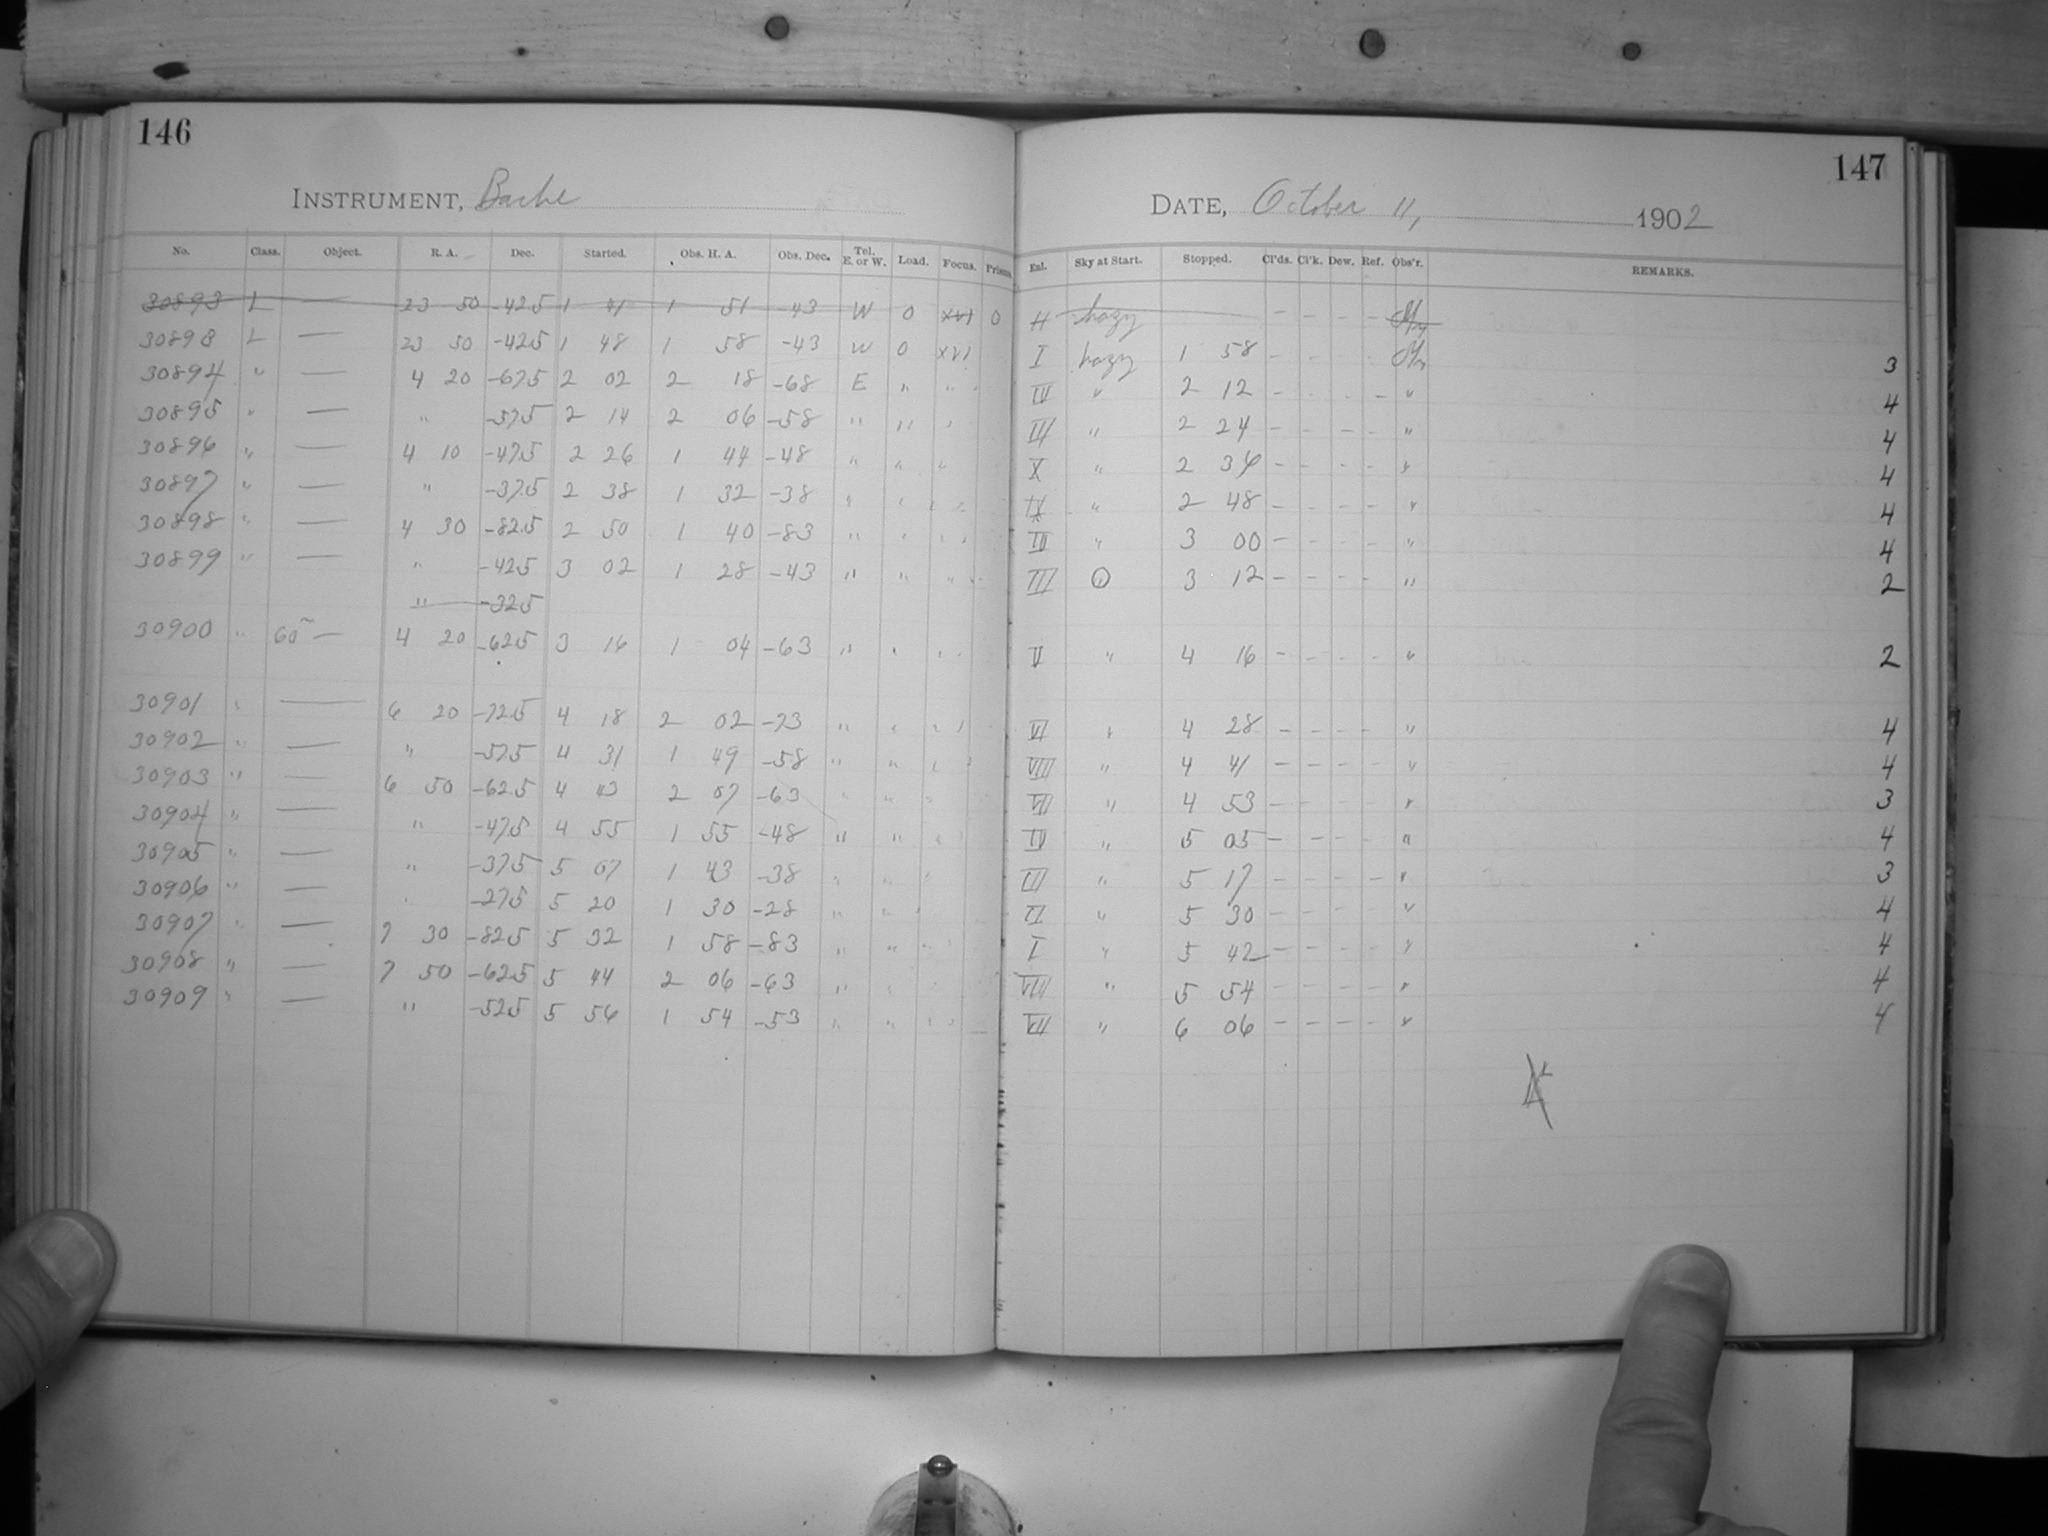 146
147
INSTRUMENT, Bache
DATE, October 11, 1902
No. Class. Object. R. A. Dec. Started. Obs. H. A. Obs. Dec. Tel. E. or W. Load. Focus. Prisms Enl. Sky at Start. Stopped. Cl'ds. Cl'k. Dew. Ref. Obs'r. REMARKS.
30893 L — 23 50 -42.5 1 41 1 51 -43 W 0 XVI 0 II hazy - - - -
30893 L — 23 50 -42.5 1 48 1 58 -43 W 0 XVI I hazy 1 58 - - - - 3
30894 " — 4 20 -67.5 2 02 2 18 -68 E " " " " 2 12 - - - - " 4
30895 " — " -57.5 2 14 2 06 -58 " " " III " 2 24 - - - - " 4
30896 " — 4 10 -47.5 2 26 1 44 -48 " " " X " 2 36 - - - - " 4
30897 " — " -37.5 2 38 1 32 -38 " " " " 2 48 - - - - " 4
30898 " — 4 30 -82.5 2 50 1 40 -83 " " " " 3 00 - - - - " 4
30899 " — " -42.5 3 02 1 28 -43 " " " III " 3 12 - - - - " 2
" -32.5
30900 " 60m — 4 20 -62.5 3 16 1 04 -63 " " " V " 4 16 - - - - " 2
30901 " — 6 20 -72.5 4 18 2 02 -73 " " " VI " 4 28 - - - - " 4
30902 " — " -57.5 4 31 1 49 -58 " " " VIII " 4 41 - - - - " 4
30903 " — 6 50 -62.5 4 43 2 07 -63 " " " VII " 4 53 - - - - " 3
30904 " — " -47.5 4 55 1 55 -48 " " " IV " 5 05 - - - - " 4
30905 " — " -37.5 5 07 1 43 -38 " " " III " 5 17 - - - - " 3
30906 " — " -27.5 5 20 1 30 -28 " " " II " 5 30 - - - - " 4
30907 " — 7 30 -82.5 5 32 1 58 -83 " " " I " 5 42 - - - - " 4
30908 " — 7 50 -62.5 5 44 2 06 -63 " " " VIII " 5 54 - - - - " 4
30909 " — " -52.5 5 56 1 54 -53 " " " VII " 6 06 - - - - " 4